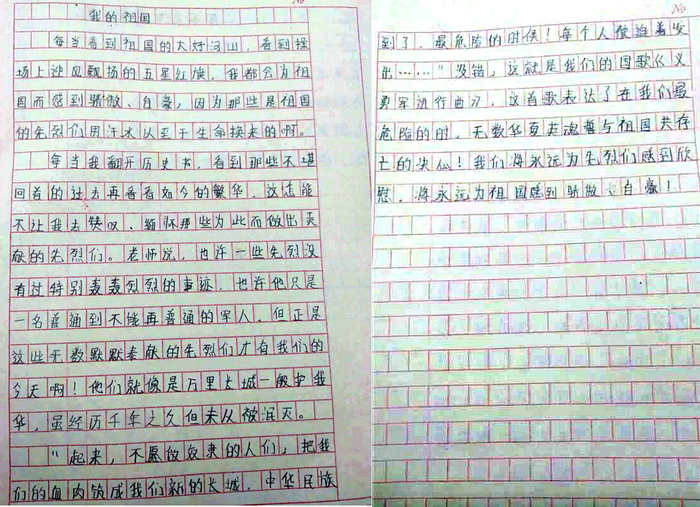 No
我的祖国
每当看到祖国的大好河山，看到操
场上迎风飘扬的五星红旗，我都会为祖
国而感到骄傲、自豪，因为那些是祖国
的先烈们用汗水从至于生命换来的啊。
每当我翻开历史书，看到那些不堪
回首的过去再看看如今的繁华，这怎能
不让我去赞叹、缅怀那些为此而做出贡
献的先烈们。老师说，也许一些先烈没
有过特别轰轰烈烈的事迹，也许他只是
一名普通到不能再普通的军人。但正是
这些无数默默奉献的先烈们才有我们的
今天啊！他们就像是万里长城一般护我
华，虽经历千年之久但未从被泯灭。
“起来，不愿做奴隶的人们，把我
们的血肉筑成我们新的长城，中华民族
No
到了，最危险的时候！每个人被迫着发
出……”没错，这就是我们的国歌《义
勇军进行曲》，这首歌表达了在我们最
危险的时，无数华夏英魂誓与祖国共存
亡的决心！我们将永远为先烈们感到欣
慰，将永远为祖国感到骄傲、自豪！